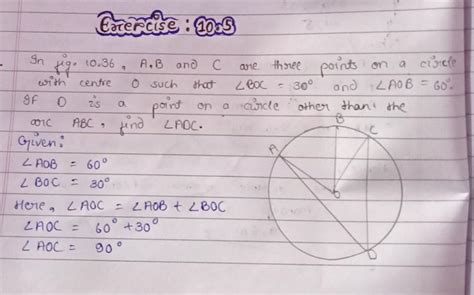 Exercise : 10.5
In fig. 10.36, A,B and C are three points on a circle
with centre O such that ∠BOC = 30° and ∠AOB = 60°.
If D is a point on a circle other than the
arc ABC, find ∠ADC.
Given:
∠AOB = 60°
∠BOC = 30°
Here, ∠AOC = ∠AOB + ∠BOC
∠AOC = 60° + 30°
∠AOC = 90°
B
C
A
O
D